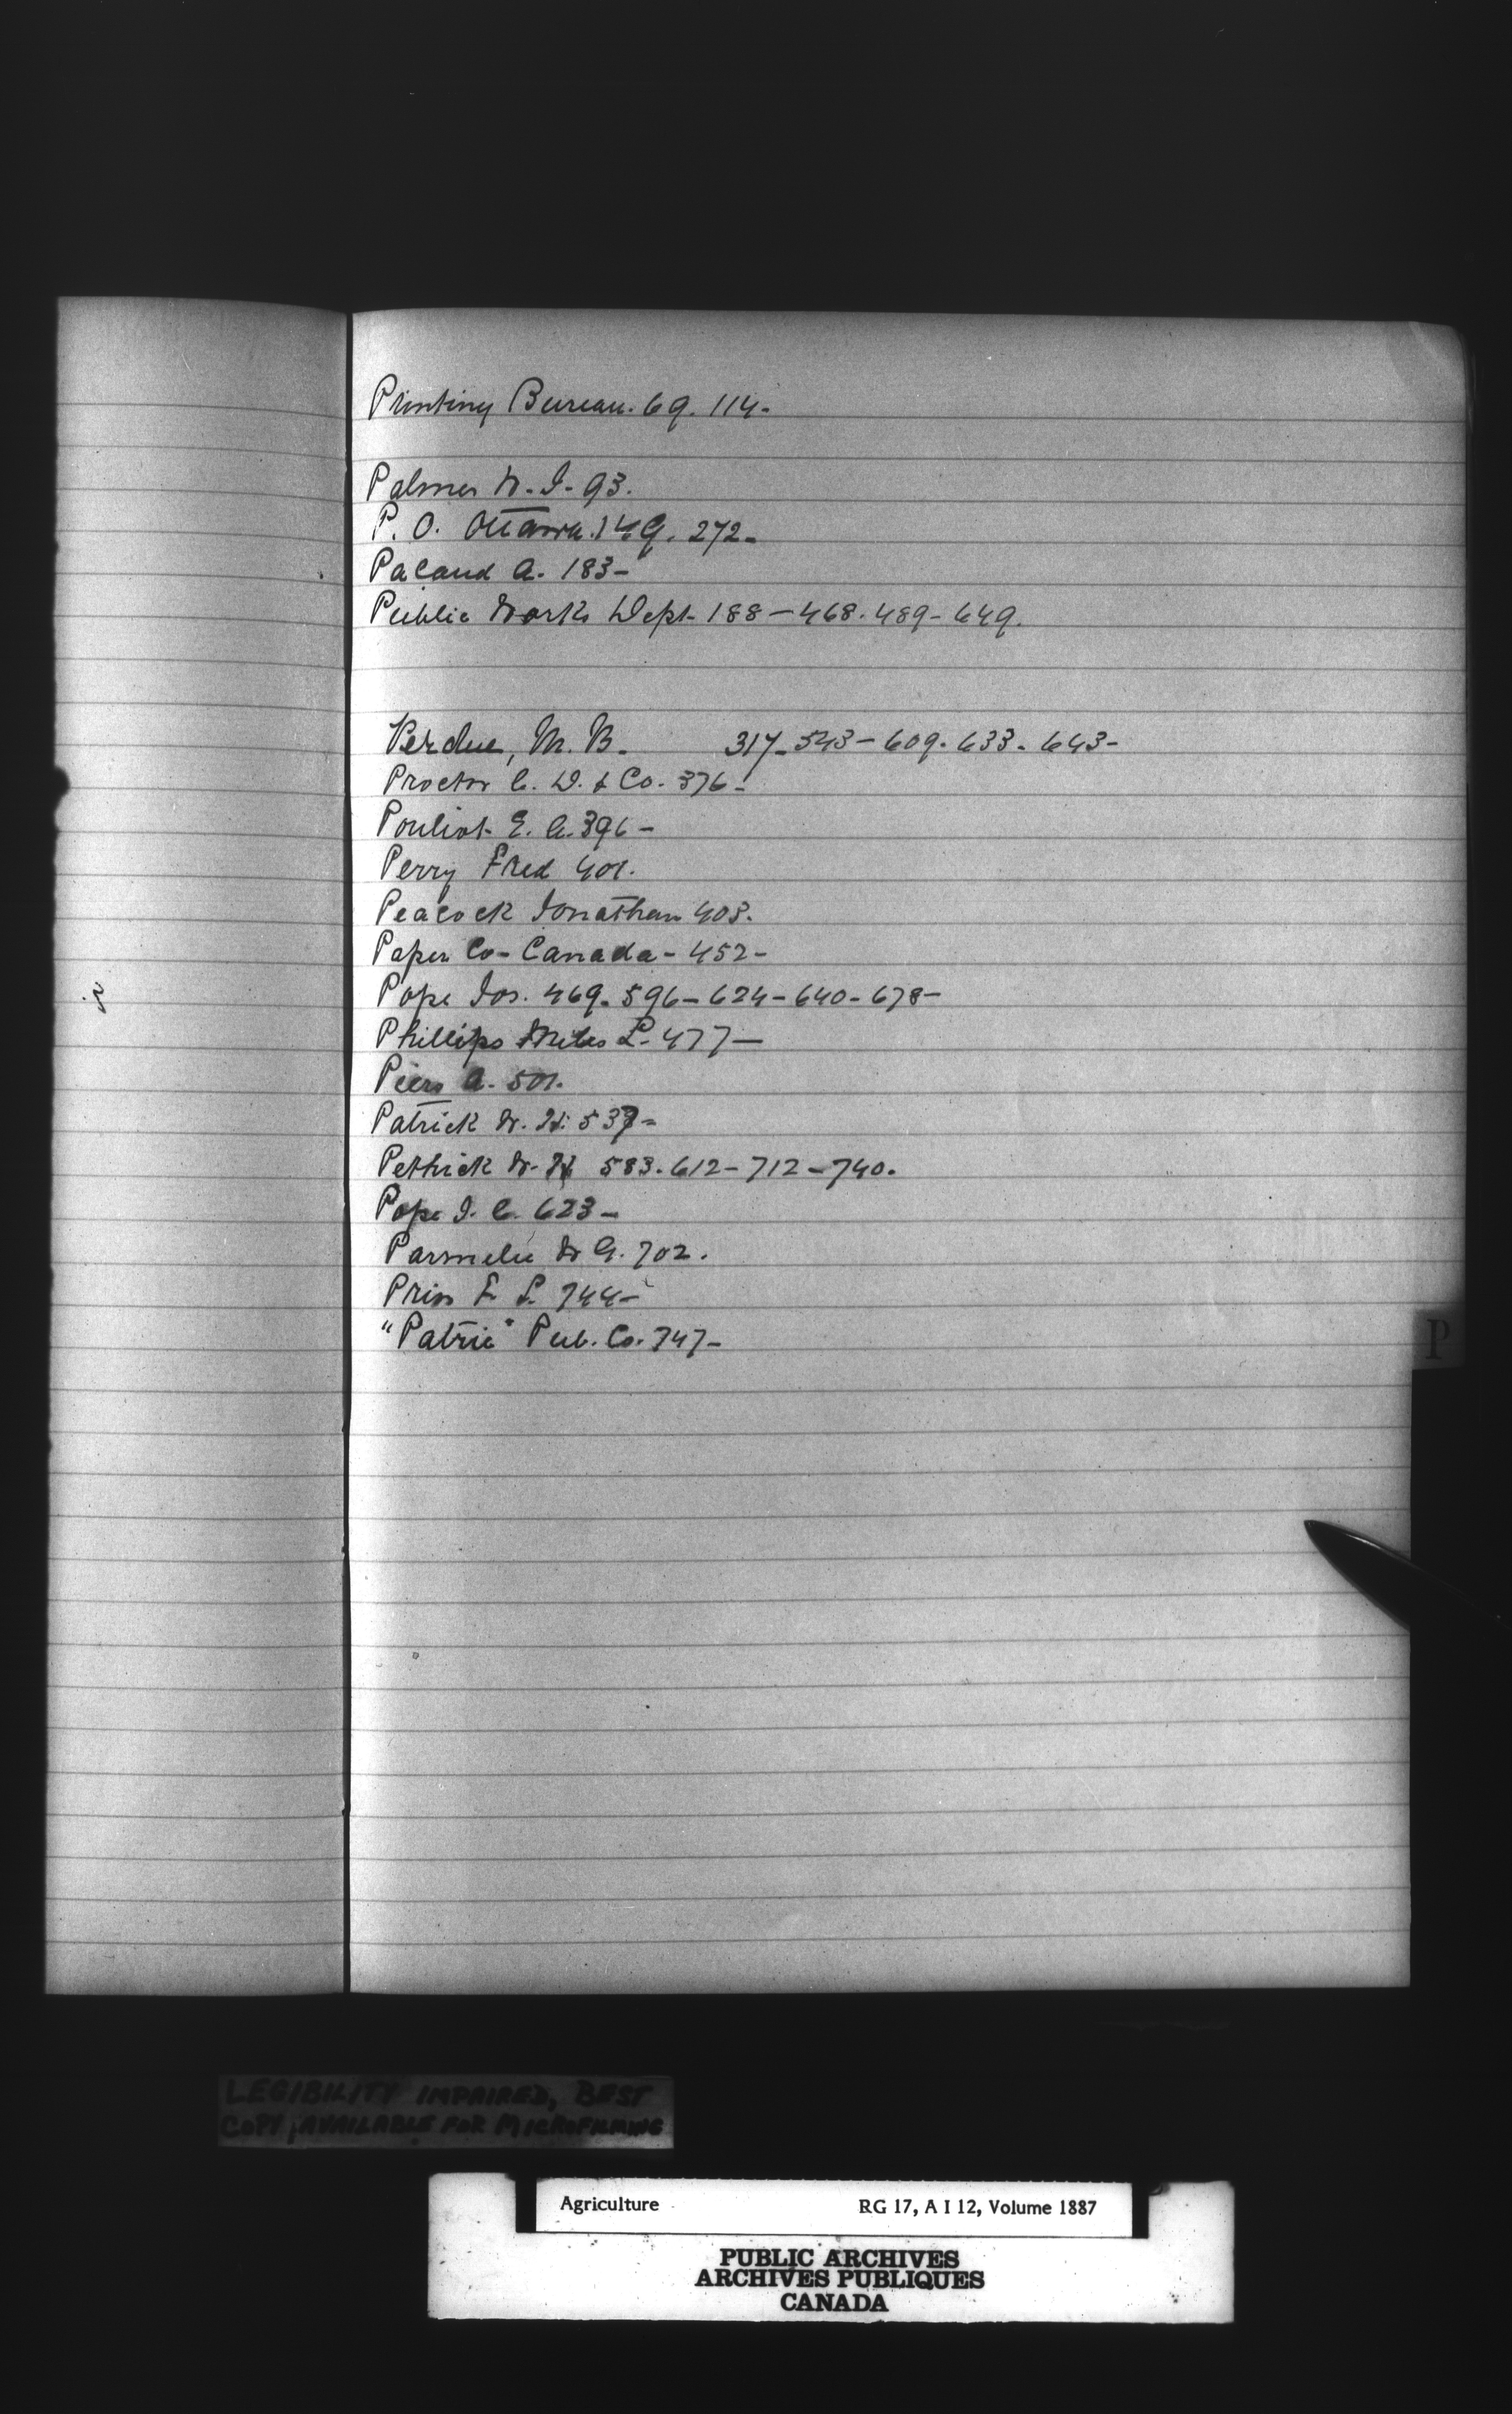 Printing Bureau. 69. 114-
Palmer W. I- 93.
P. O. Ottawa. 149. 272-
Pacaud A. 183-
Public Works Dept- 188-468. 489-649.
Perdue, M. B. 317-543-609. 633. 643-
Proctor C. D. & Co. 376-
Pouliot E. C. 396-
Perry Fred 401.
Peacock Jonathan 403.
Paper Co- Canada- 452-
Pope Jos. 469. 596-624-640-678-
Phillips Miles L- 477-
Peers A. 501.
Patrick W. H. 537-
Pethick W. H 583. 612-712-740.
Pope J. C. 623-
Parmelee W G. 702.
744-
"Patrie" Pub. Co. 747-
P
LEGIBILITY IMPAIRED, BEST
COPY AVAILABLE FOR MICROFILMING
Agriculture RG 17, A I 12, Volume 1887
PUBLIC ARCHIVES
ARCHIVES PUBLIQUES
CANADA